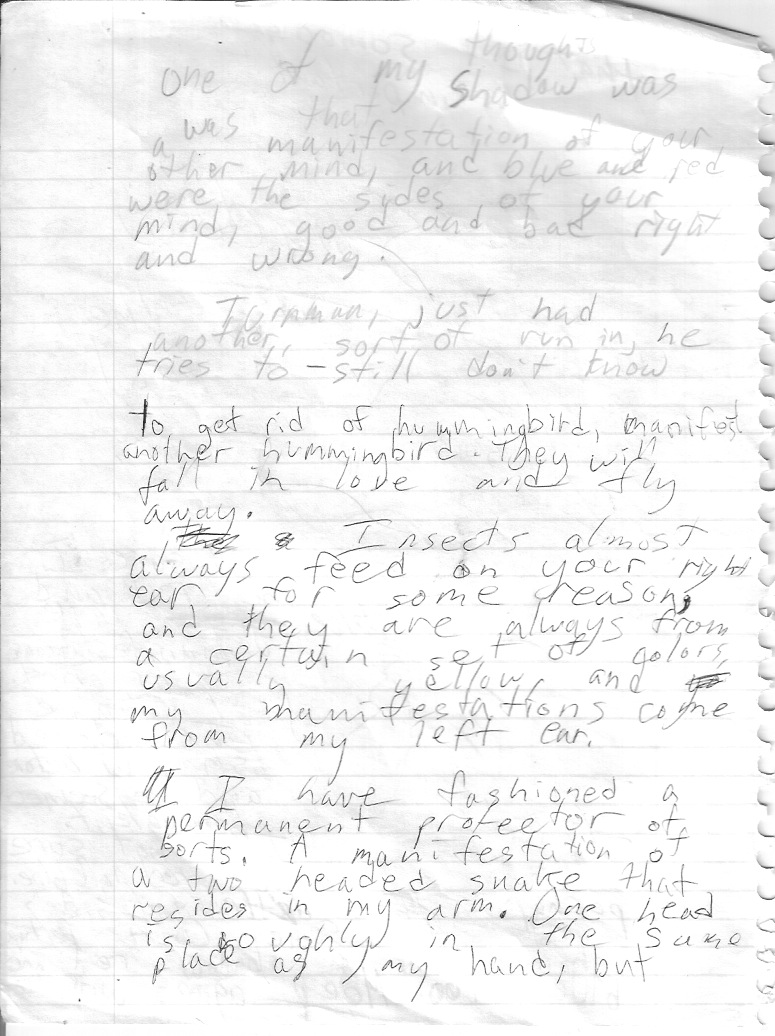 One of my thoughts
shadow was
was that
a manifestation of your
other mind, and blue and red
were the sydes of your
mind, good and bad right
and wrong.
just had
another, sort of run in, he
tries to - still don't know
to get rid of hummingbird, manifest
another hummingbird. They will
fall in love and fly
away.
Insects almost
always feed on your right
ear, for some reason,
and they are always from
a certain set of golors,
usually yellow, and
my manifestations come
from my left ear.
I have fashioned a
permanent protector of
sorts. A manifestation of
a two headed snake that
resides in my arm. One head
is roughly in the same
place as my hand, but